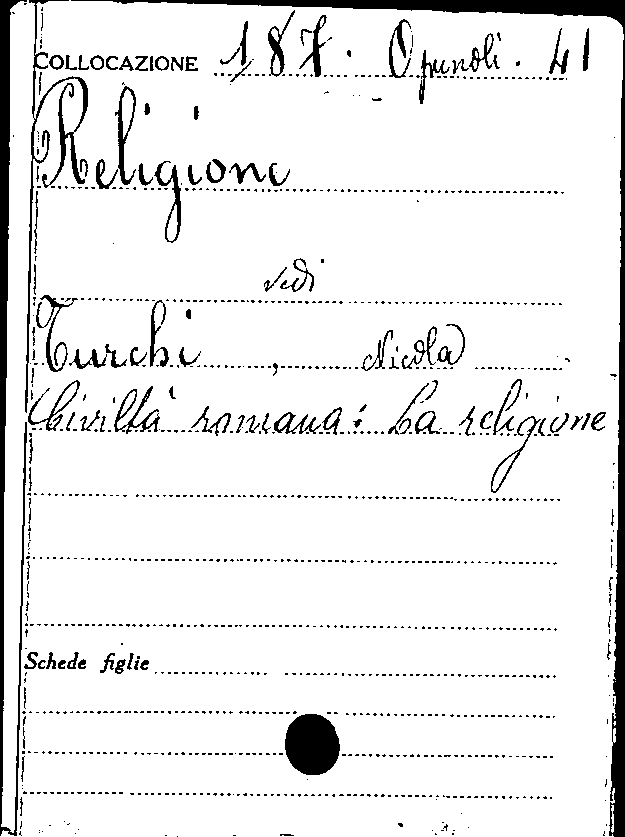 COLLOCAZIONE 187. Opuscoli. 41
Religione
vedi
Turchi, Nicola
Civiltà romana: La religione
Schede figlie